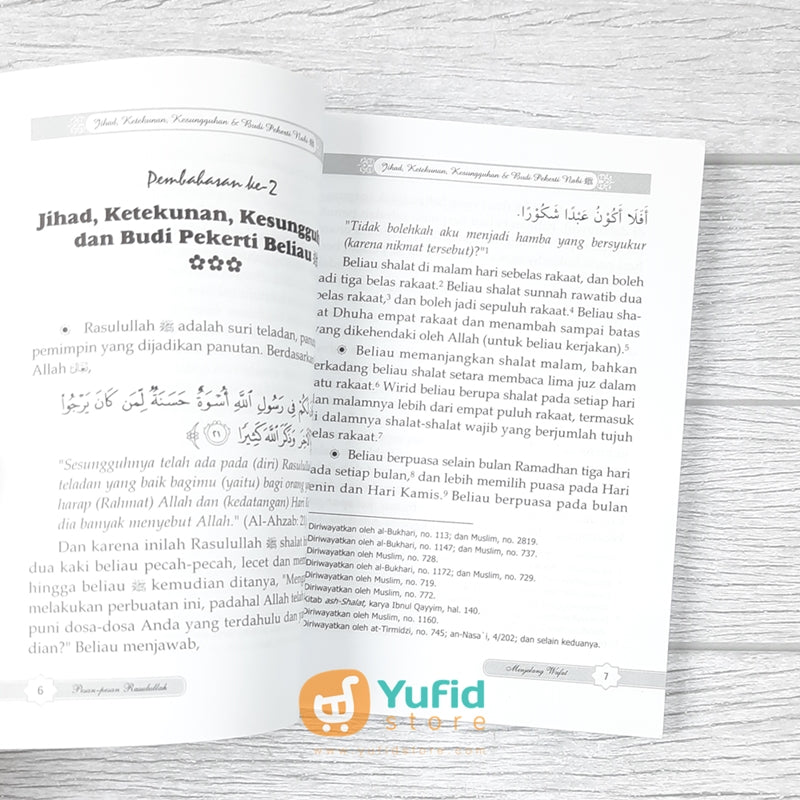 Jihad, Ketekunan, Kesungguhan & Budi Pekerti Nabi ﷺ
Pembahasan ke-2
Jihad, Ketekunan, Kesungguh
dan Budi Pekerti Beliau ﷺ
Rasulullah ﷺ adalah suri teladan, panu
pemimpin yang dijadikan panutan. Berdasarkan
Allah
لَكُمْ فِي رَسُولِ اللَّهِ أُسْوَةٌ حَسَنَةٌ لِّمَن كَانَ يَرْجُوا
وَذَكَرَ اللَّهَ كَثِيرًا ٢١
"Sesungguhnya telah ada pada (diri) Rasulu
teladan yang baik bagimu (yaitu) bagi orang
harap (Rahmat) Allah dan (kedatangan) Hari
dia banyak menyebut Allah." (Al-Ahzab: 21
Dan karena inilah Rasulullah ﷺ shalat
dua kaki beliau pecah-pecah, lecet dan
hingga beliau ﷺ kemudian ditanya, "Meng
melakukan perbuatan ini, padahal Allah
puni dosa-dosa Anda yang terdahulu dan
dian?" Beliau menjawab,
6 Pesan-pesan Rasulullah
Jihad, Ketekunan, Kesungguhan & Budi Pekerti Nabi ﷺ
أَفَلَا أَكُوْنُ عَبْدًا شَكُوْرًا.
"Tidak bolehkah aku menjadi hamba yang bersyukur
(karena nikmat tersebut)?"1
Beliau shalat di malam hari sebelas rakaat, dan boleh
adi tiga belas rakaat.2 Beliau shalat sunnah rawatib dua
belas rakaat,3 dan boleh jadi sepuluh rakaat.4 Beliau sha-
at Dhuha empat rakaat dan menambah sampai batas
yang dikehendaki oleh Allah (untuk beliau kerjakan).5
Beliau memanjangkan shalat malam, bahkan
erkadang beliau shalat setara membaca lima juz dalam
atu rakaat.6 Wirid beliau berupa shalat pada setiap hari
an malamnya lebih dari empat puluh rakaat, termasuk
i dalamnya shalat-shalat wajib yang berjumlah tujuh
elas rakaat.7
Beliau berpuasa selain bulan Ramadhan tiga hari
ada setiap bulan,8 dan lebih memilih puasa pada Hari
enin dan Hari Kamis.9 Beliau berpuasa pada bulan
Diriwayatkan oleh al-Bukhari, no. 113; dan Muslim, no. 2819.
Diriwayatkan oleh al-Bukhari, no. 1147; dan Muslim, no. 737.
Diriwayatkan oleh Muslim, no. 728.
Diriwayatkan oleh al-Bukhari, no. 1172; dan Muslim, no. 729.
Diriwayatkan oleh Muslim, no. 719.
Diriwayatkan oleh Muslim, no. 772.
Kitab ash-Shalat, karya Ibnul Qayyim, hal. 140.
Diriwayatkan oleh Muslim, no. 1160.
Diriwayatkan oleh at-Tirmidzi, no. 745; an-Nasa`i, 4/202; dan selain keduanya.
Menjelang Wafat 7
Yufid
store
www.yufidstore.com